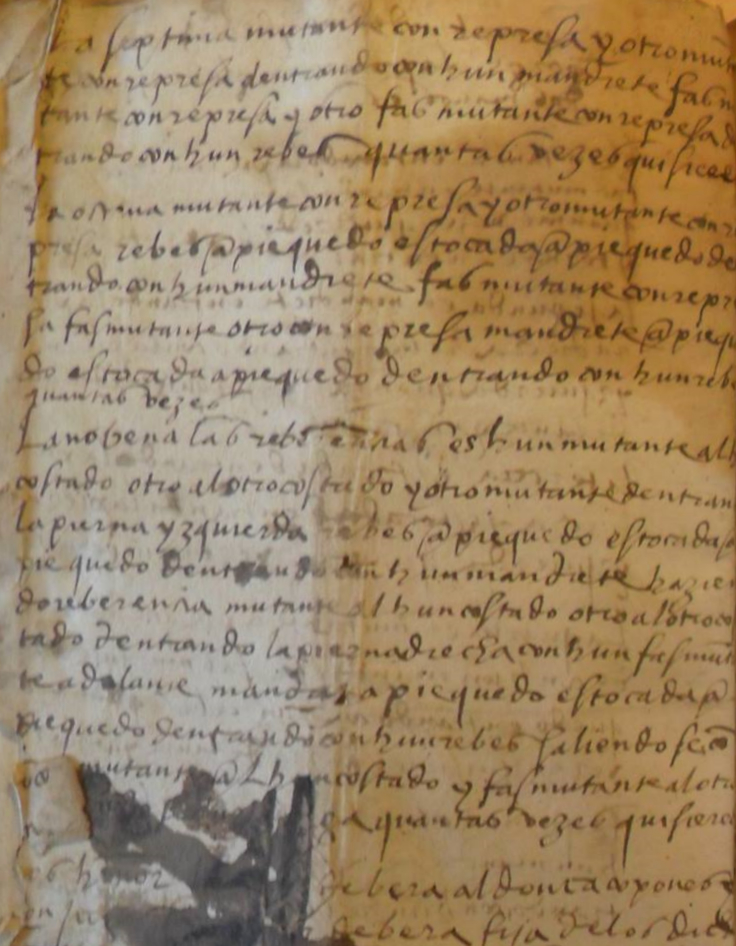 La septima mutante con represa y otro mu
te con represa dentrando con hun mandrete fas m
tante con represa y otro fas mutante con represa d
trando con hun rebes quantas vezes quisiere
La octava mutante con represa y otro mutante con r
presa rebes a piequedo estocada a piequedo de
trando con hun mandrete fas mutante con repr
sa fas mutante otro con represa mandrete a piequ
do estocada a piequedo dentrando con hun rebe
quantas vezes
La novena las reberencias es hun mutante al h
costado otro al otro costado y otro mutante dentran
la pierna yzquierda rebes a piequedo estocada a
piequedo dentrando con hun mandrete hazien
do reberencia mutante al hun costado otro al otro co
tado dentrando la pierna drecha con hun fas mut
te adelante a piequedo estocada a
piequedo dentrando con hun rebes saliendose co
mutante al hun costado y fas mutante al otr
quantas vezes quisiere
honor debera al don
debera fija de los dich